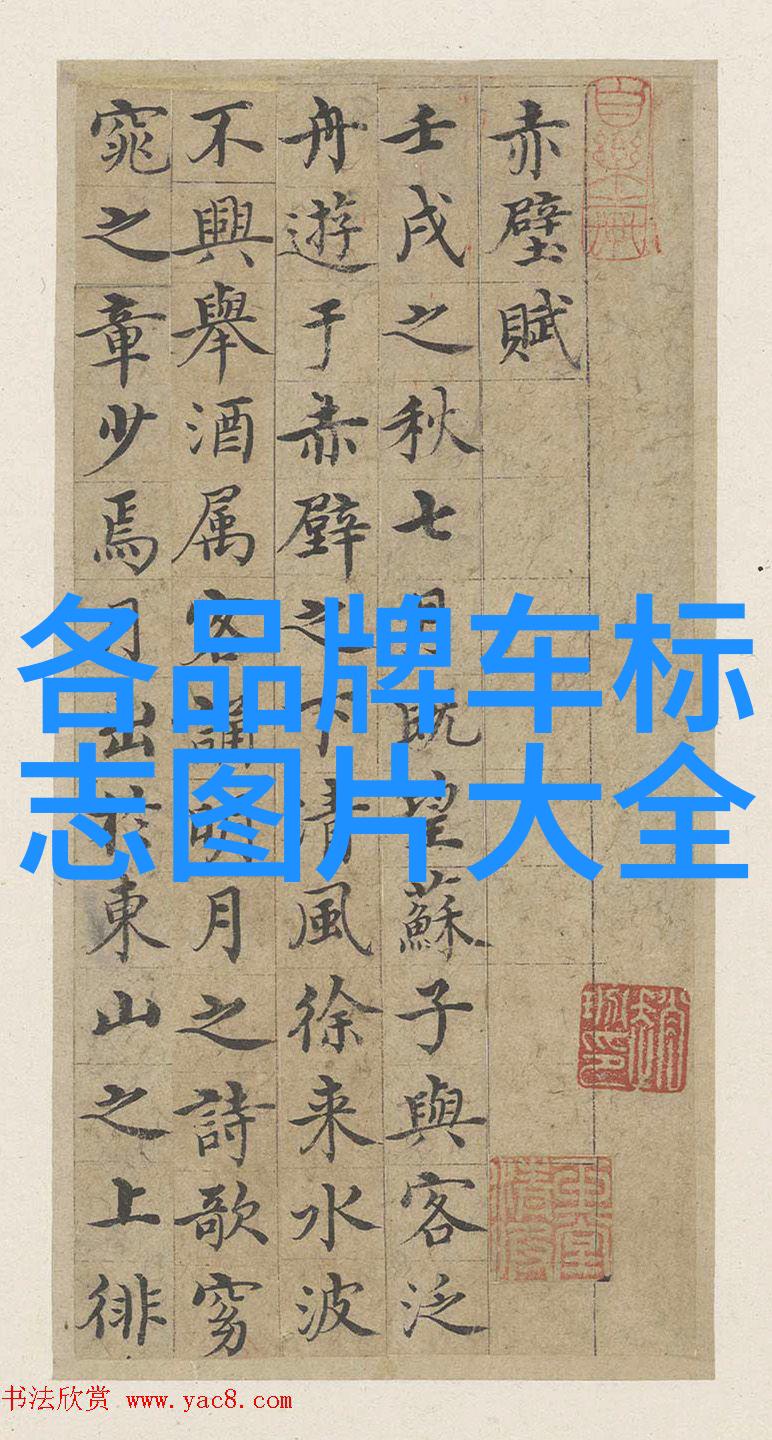 赤壁賦
壬戌之秋七月既望蘇子與客泛
舟遊于赤壁之下清風徐来水波
不興舉酒属客誦明月之詩歌窈
窕之章少焉月出於東山之上徘
各品牌车标
志图片大全
书法欣赏 www.yac8.com